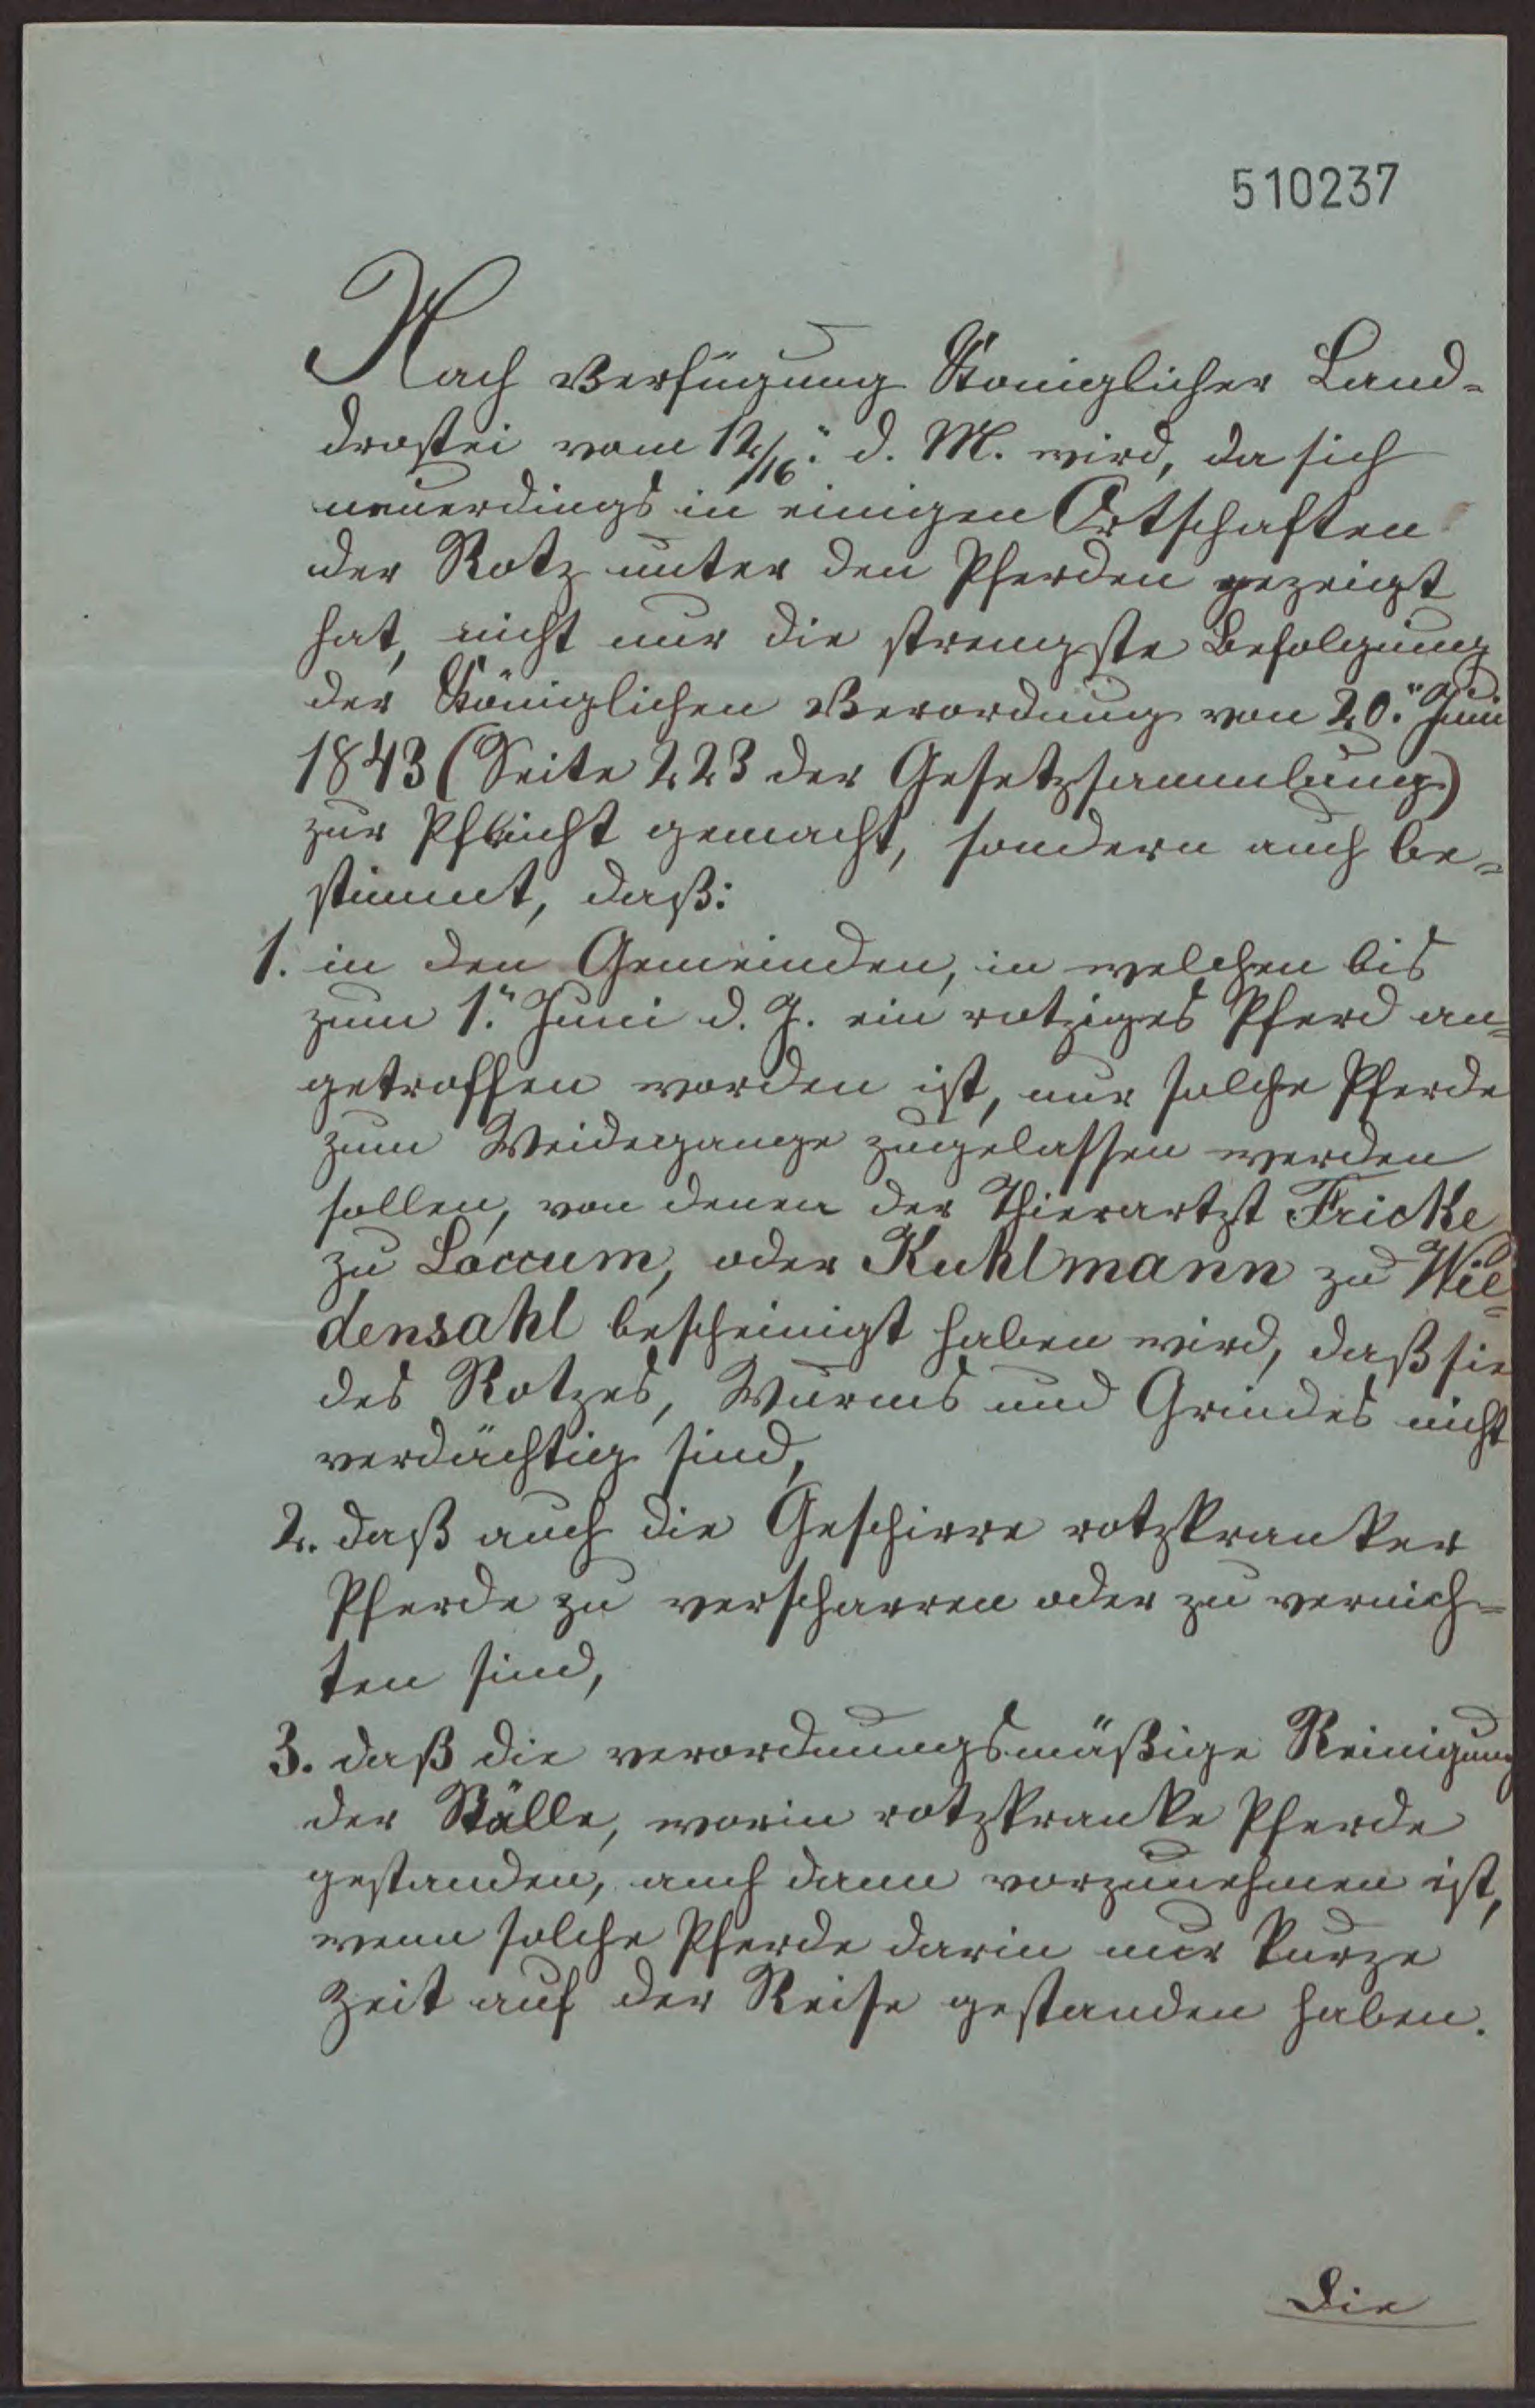 510237
Nach Verfügung Königlicher Land-
drostei vom 12/16. d. M. wird, da sich
neuerdings in einigen Ortschaften
der Rotz unter den Pferden gezeigt
hat, nicht nur die strengste Befolgung
der Königlichen Verordnung von 20. Juni
1843 (Seite 223 der Gesetzsammlung)
zur Pflicht gemacht, sondern auch be-
stimmt, daß:
1. in den Gemeinden, in welchen bis
zum 1. Juni d. J. ein rotziges Pferd an-
getroffen worden ist, nur solche Pferde
zum Weidegange zugelassen werden
sollen, von denen der Thierartzt Fricke
zu Loccum, oder Kuhlmann zu Wie-
densahl bescheinigt haben wird, daß sie
des Rotzes, Wurms und Grindes nicht
verdächtig sind,
2. daß auch die Geschirre rotzkranker
Pferde zu verscharren oder zu vernich-
ten sind,
3. daß die verordnungsmäßige Reinigung
der Ställe, worin rotzkranke Pferde
gestanden, auch dann vorzunehmen ist,
wenn solche Pferde darin nur kurze
Zeit auf der Reise gestanden haben.
Die